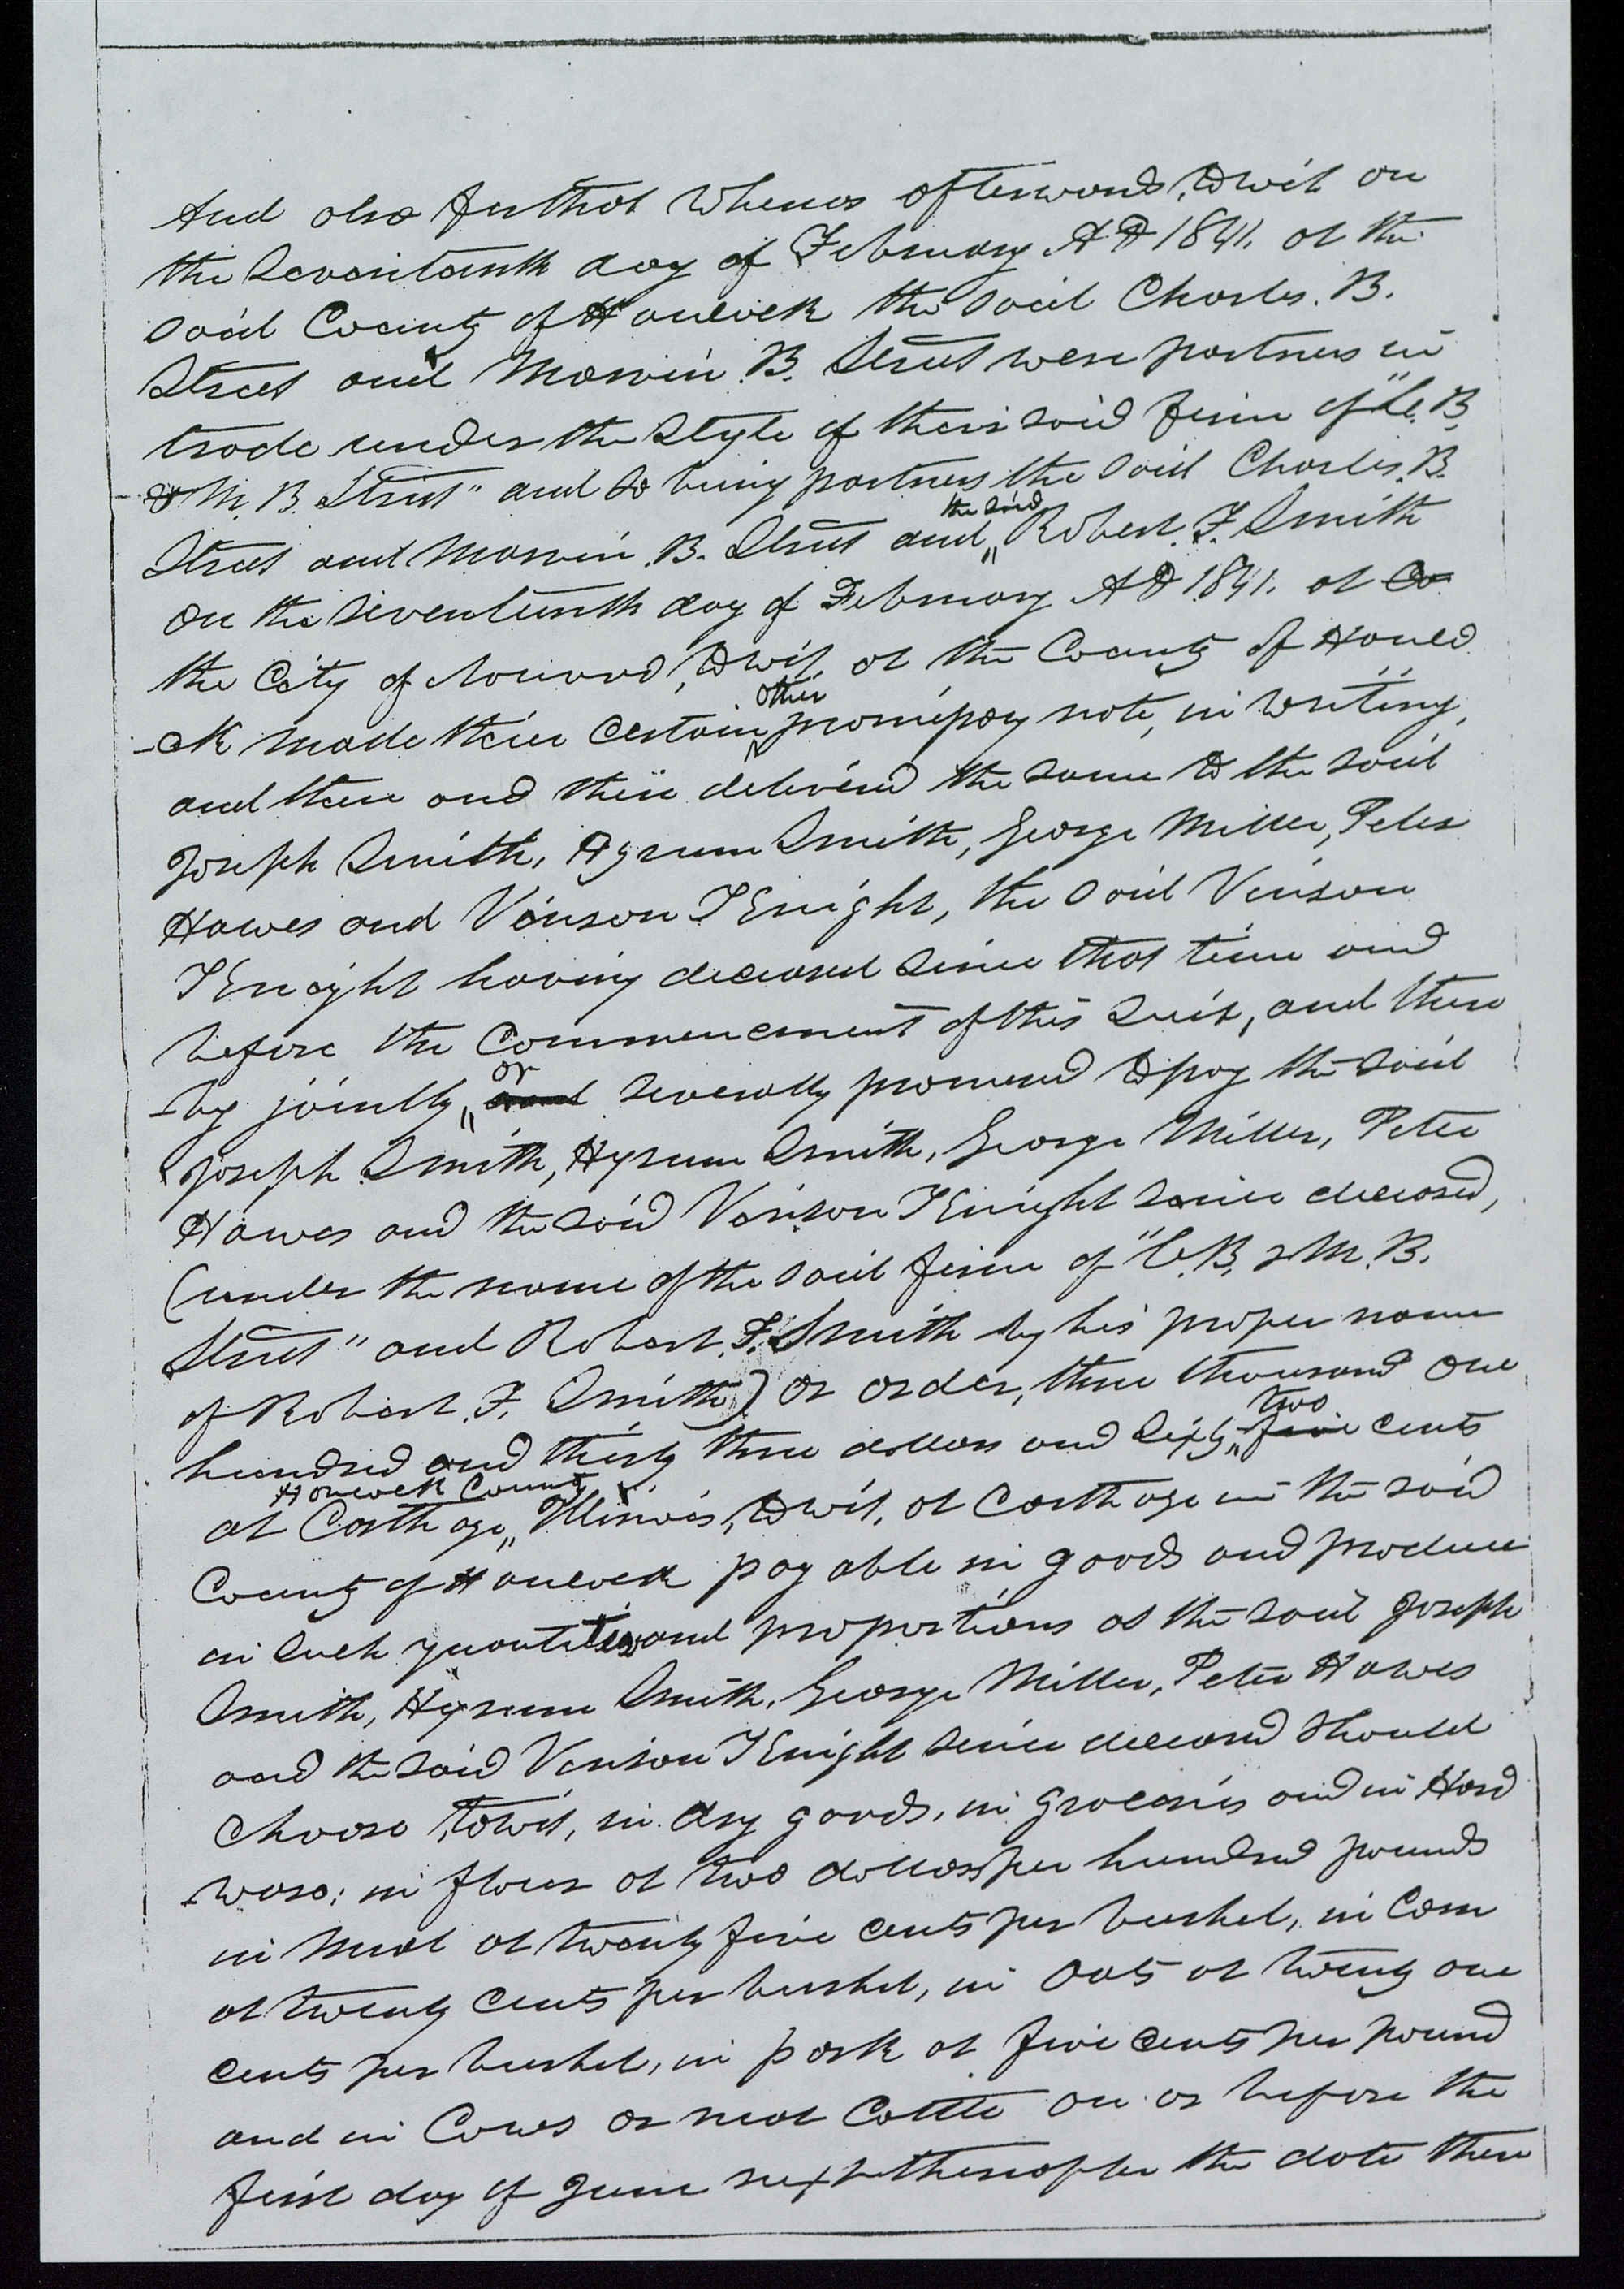 And also for that Whereas afterwards, to wit on
the Seventeenth day of February A D 1841. at the
said County of Hancock the said Charles. B.
Street and Marvin. B. Street were partners in
trade under the Style of their said firm of "C. B.
& M. B. Street" and so being partners the said Charles. B.
Street and Marvin. B. Street and the said Robert. F. Smith
on the seventeenth day of February A D 1841. at Co
the City of Nauvoo, to wit, at the County of Hanco
-ck made their certain other promissory note, in writing,
and then and there delivered the same to the said
Joseph Smith, Hyrum Smith, George Miller, Peter
Hawes and Vinson Knight, the said Vinson
Knight having deceased since that time and
before the Commencement of this Suit, and there
-by jointly or and severally promised to pay the said
Joseph Smith, Hyrum Smith, George Miller, Peter
Hawes and the said Vinson Knight since deceased,
(under the name of the said firm of "C. B. & M. B.
Street" and Robert. F. Smith by his proper name
of Robert. F. Smith) or order, three thousand one
hundred and thirty three dollars and sixty two five cents
at Carthage Hancock County Illinois, to wit, at Carthage in the said
County of Hancock payable in goods and produce
in such quantities and proportions as the said Joseph
Smith, Hyrum Smith, George Miller, Peter Hawes
and the said Vinson Knight since deceased should
choose, to wit, in dry goods, in groceries and in Hard
-ware; in flour at two dollars per hundred pounds
in Meal at twenty five cents per bushel, in Corn
at twenty cents per bushel, in Oats at twenty one
cents per bushel, in pork at five cents per pound
and in Cows or neat Cattle on or before the
first day of June next thereafter the date there